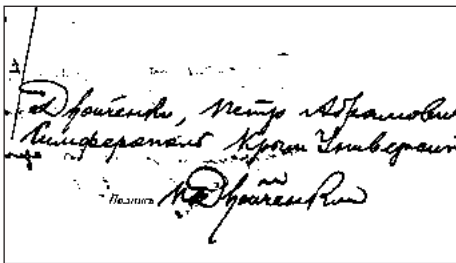 Дройченко, Петр Абрамович
Симферополь Крым Университ
Подпись П Дройченко